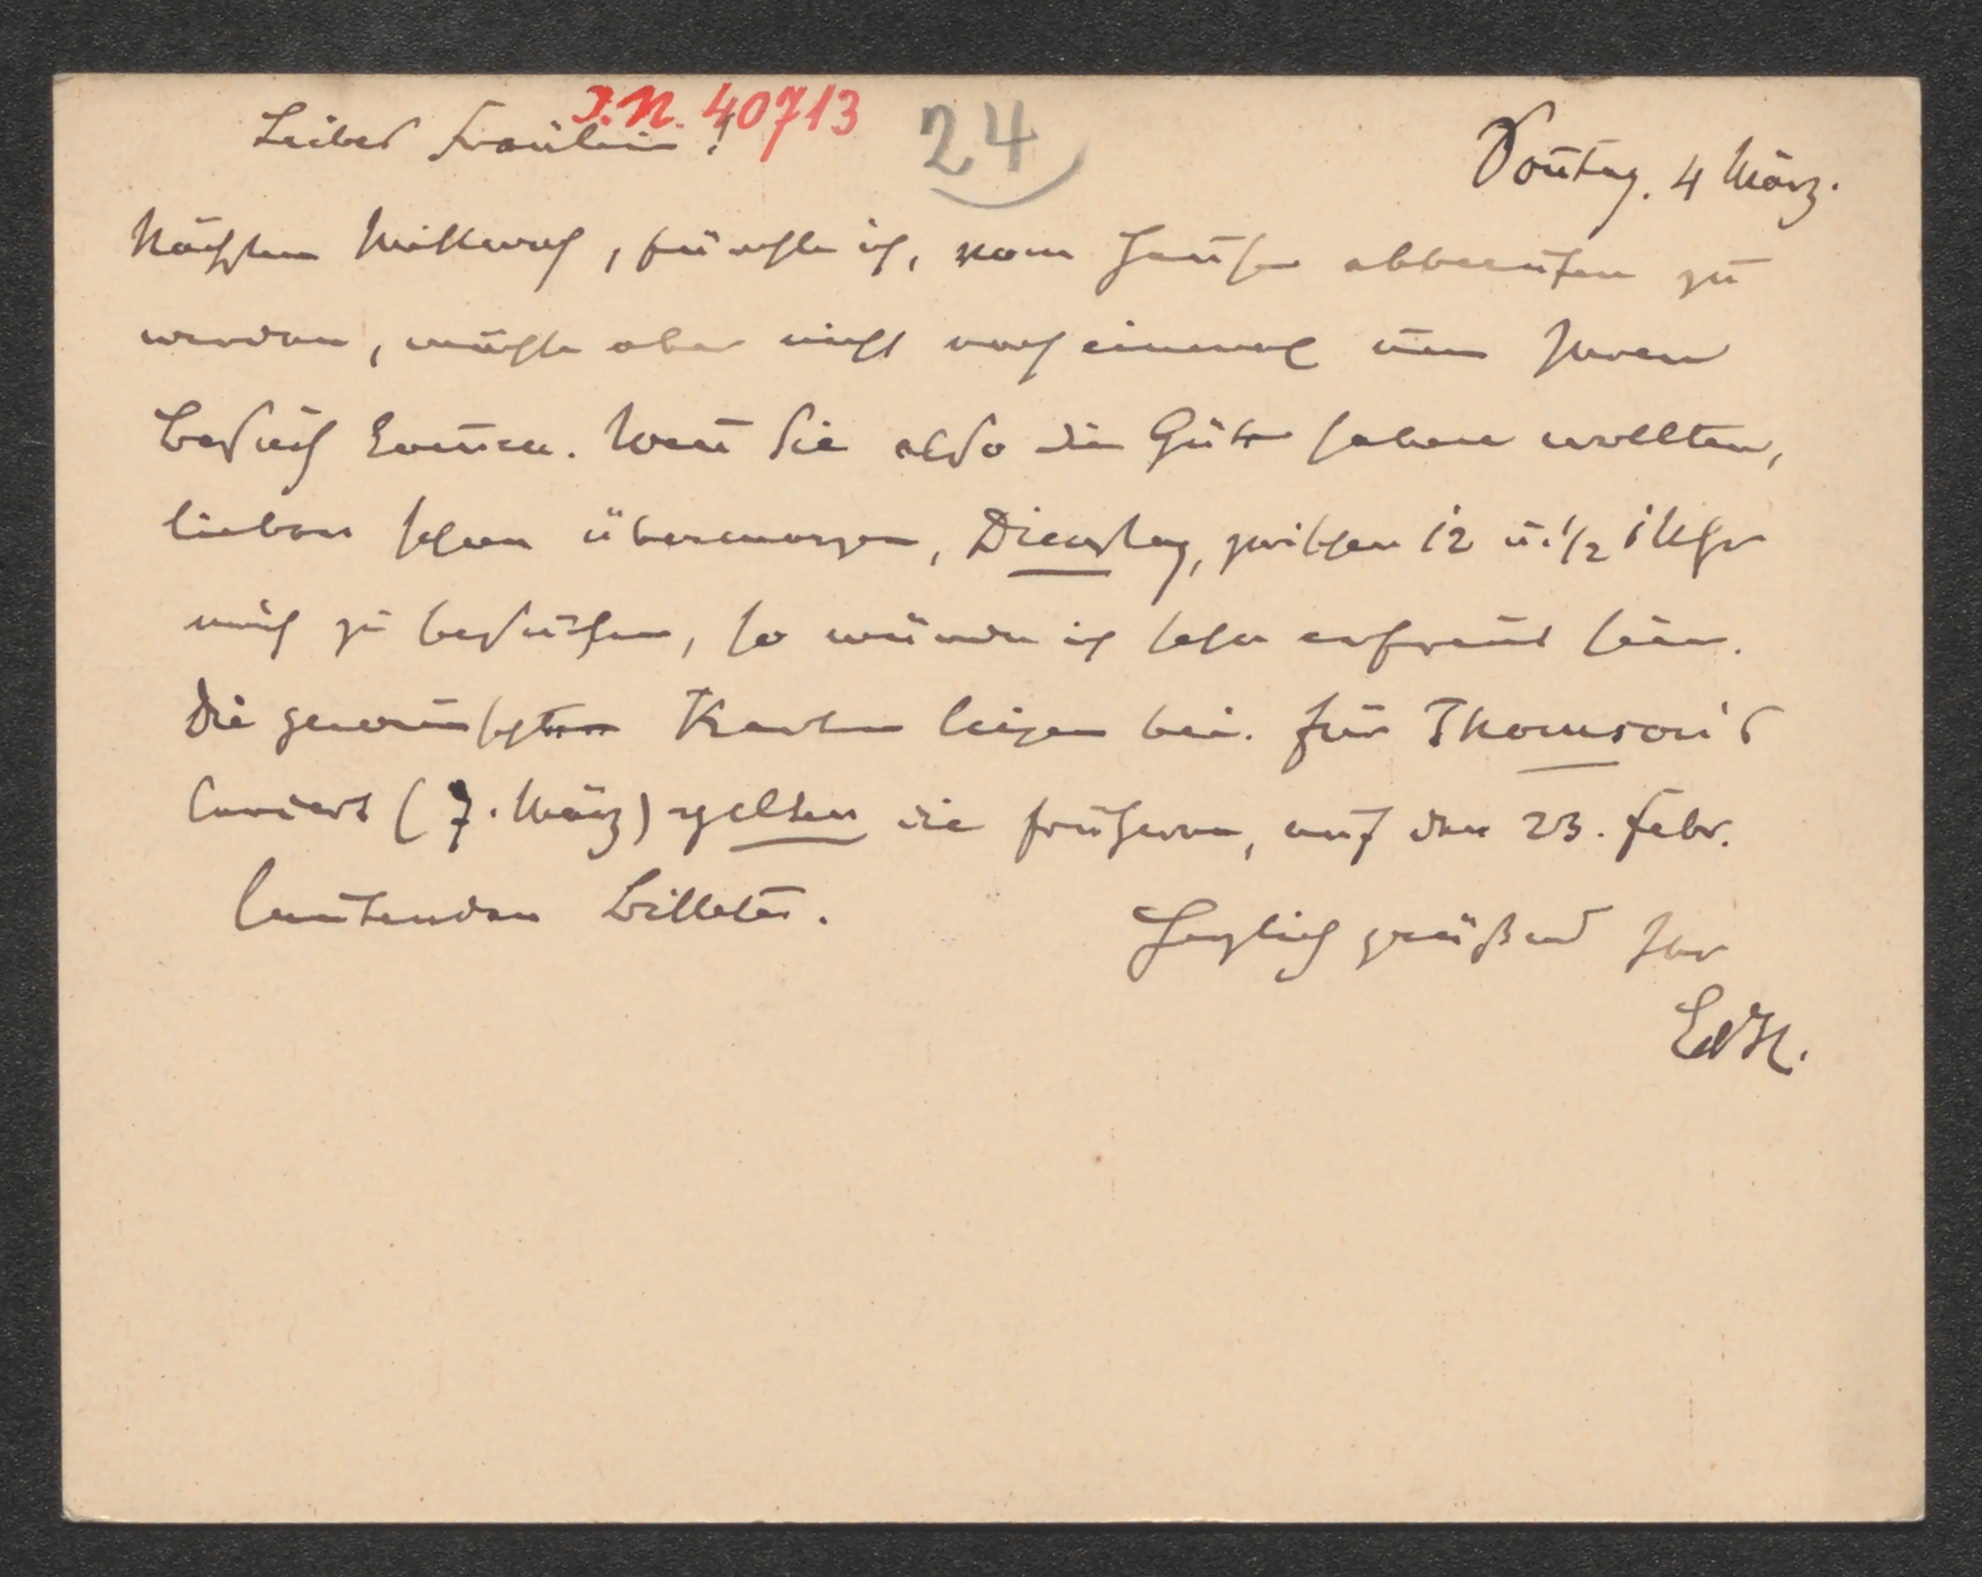 I.N. 40713
24
Liebes Fräulein!
Son̄tag. 4 März.
Nächsten Mittwoch, fürchte ich, vom Hause abberufen zu
werden, möchte aber nicht noch einmal um Ihren
Besuch kom̄en. Wen̄ Sie also die Güte haben wollten,
lieber schon übermorgen, Dienstag, zwischen 12 u. ½ 1 Uhr
mich zu besuchen, so würde ich sehr erfreut sein.
Die gewünschten Karten liegen bei. Für Thomson's
Concert (7. März) gelten die früheren, auf den 23. Febr.
lautenden Billeten.
Herzlich grüßend Ihr
EdH.